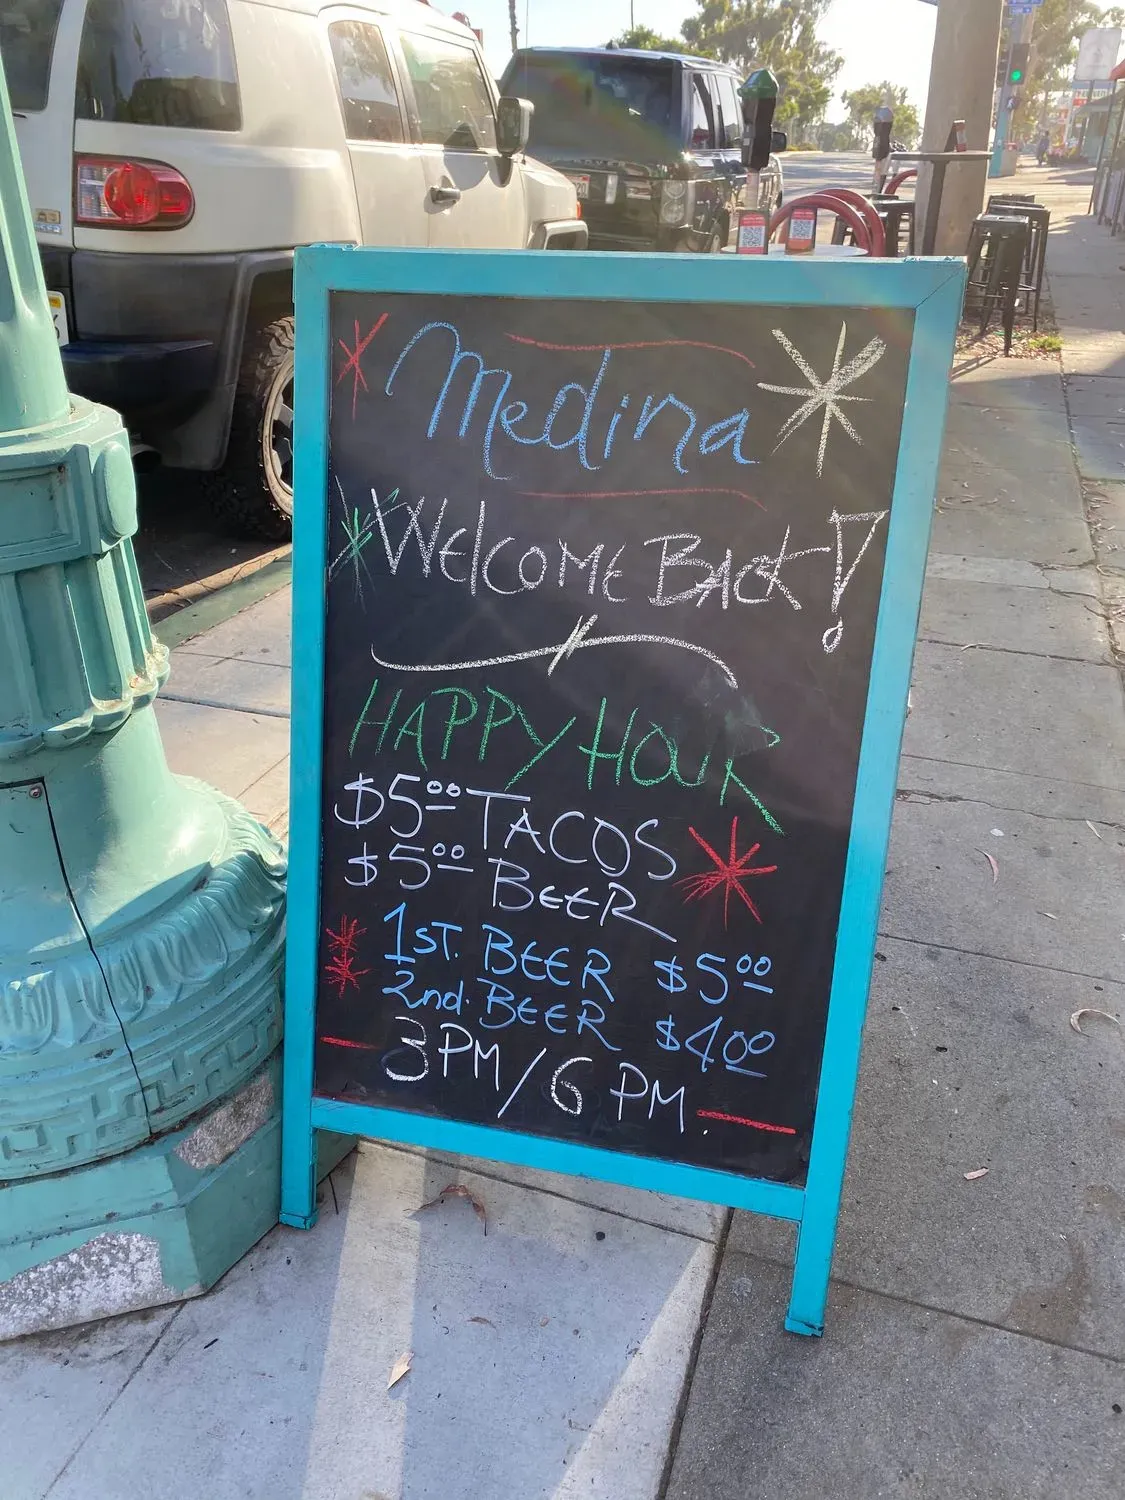 Medina
WELCOME BACK!
HAPPY HOUR
$5.00 TACOS
$5.00 BEER
1ST. BEER $5.00
2nd. BEER $4.00
3PM/6PM.